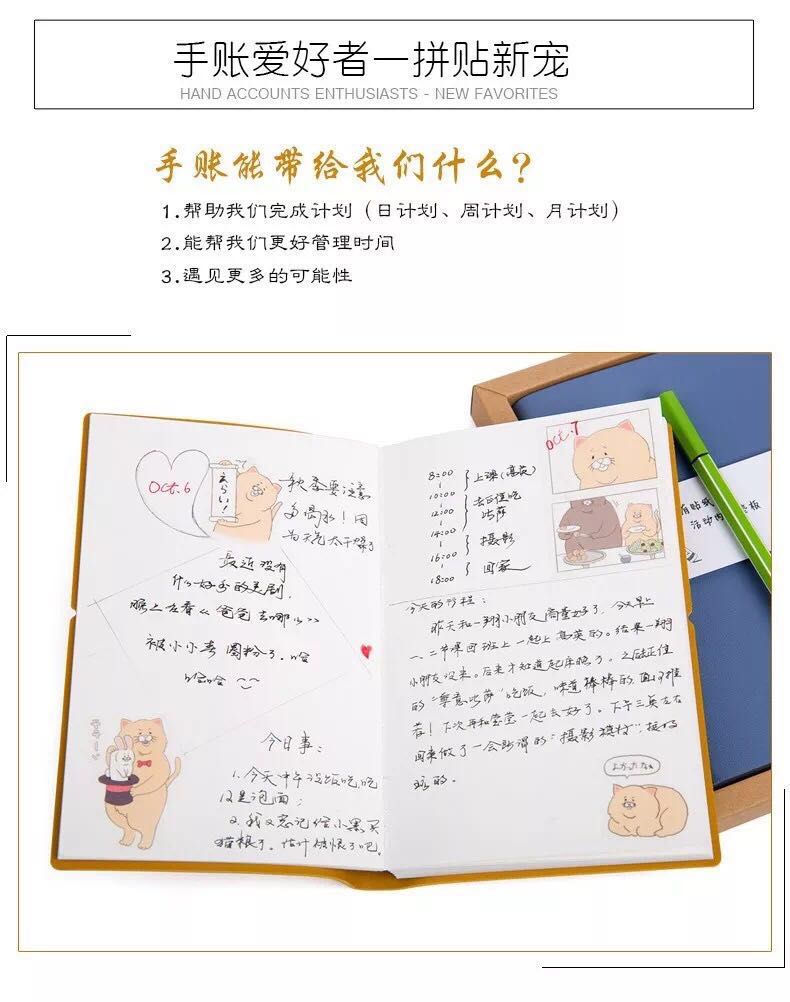 手账爱好者一拼贴新宠
HAND ACCOUNTS ENTHUSIASTS - NEW FAVORITES
手账能带给我们什么?
1.帮助我们完成计划（日计划、周计划、月计划）
2.能帮我们更好管理时间
3.遇见更多的可能性
Oct.6
えらい!
秋季要注意
多喝水!因
为天气太干燥了
最近没有
什么好看的美剧,
晚上去看《爸爸去哪儿》
被小小春圈粉了.哈
哈哈
今日事:
1.今天中午没饭吃,吃
的是泡面;
2.我又忘记给小黑买
猫粮了。估计快恨了吧。
Oct.7
8:00
10:00
12:00
14:00
16:00
18:00
上课(高英)
去正值吃
比萨
摄影
回家
今天的行程:
昨天和一翔小朋友商量好了,今天早上
一、二节课回班上一起上高英的。结果一翔
小朋友没来。后来才知道起床晚了。之后去正值
的“尊意比萨”吃饭,味道棒棒的,直可推
荐!下次再和莹莹一起去好了。下午三点左右
回来做了一会所谓的“摄影模特”,挺好
玩的。
有贴纸
活动内
板